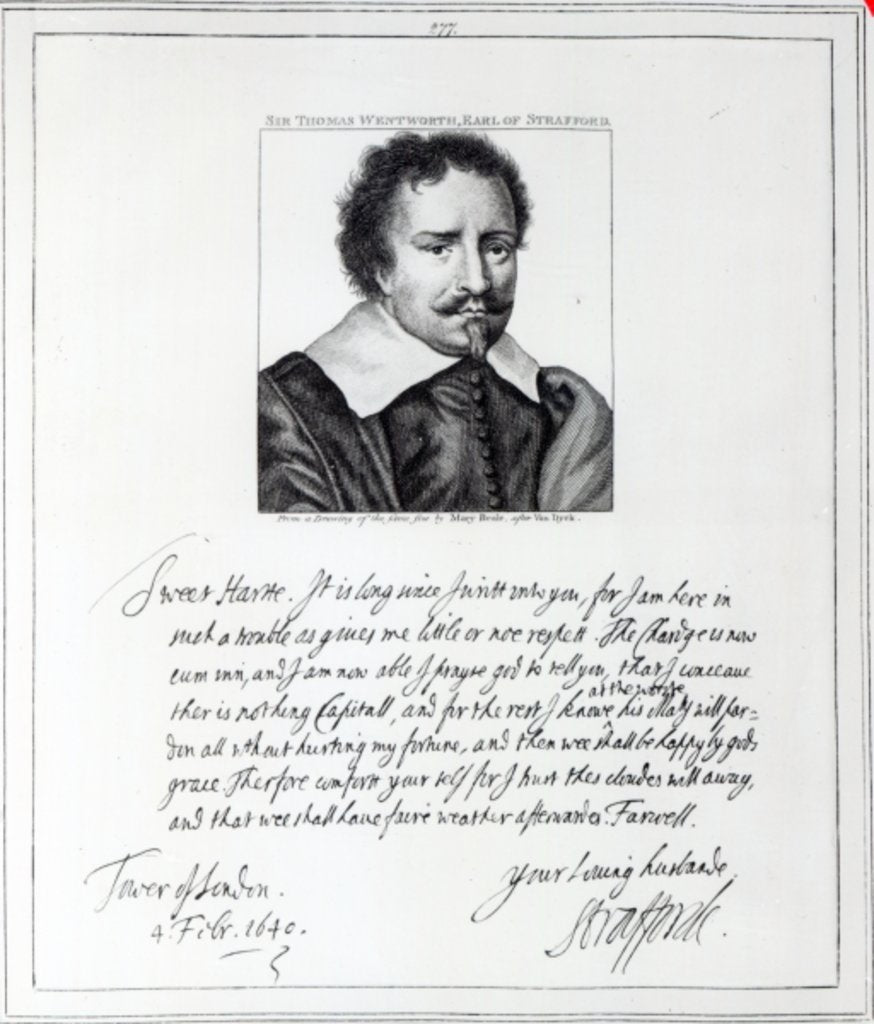 277.
SIR THOMAS WENTWORTH, EARL OF STRAFFORD.
From a Drawing of the same size by Mary Beale, after Van Dyck.
Sweet Harte. It is long since I writt unto you, for I am here in
such a trouble as gives me little or noe respett. The Chardge is now
cum inn, and I am now able I prayse god to tell you, that I conceaue
ther is nothing Capitall, and for the rest I knowe at the worste his Maty will par=
don all without hurting my fortune, and then wee shall be happy by gods
grace. Therfore comfort your self for I trust thes cloudes will away,
and that wee shall haue faire weather afterwardes. Farwell.
Your loving husbande
Tower of London.
Strafforde.
4. Febr. 1640.